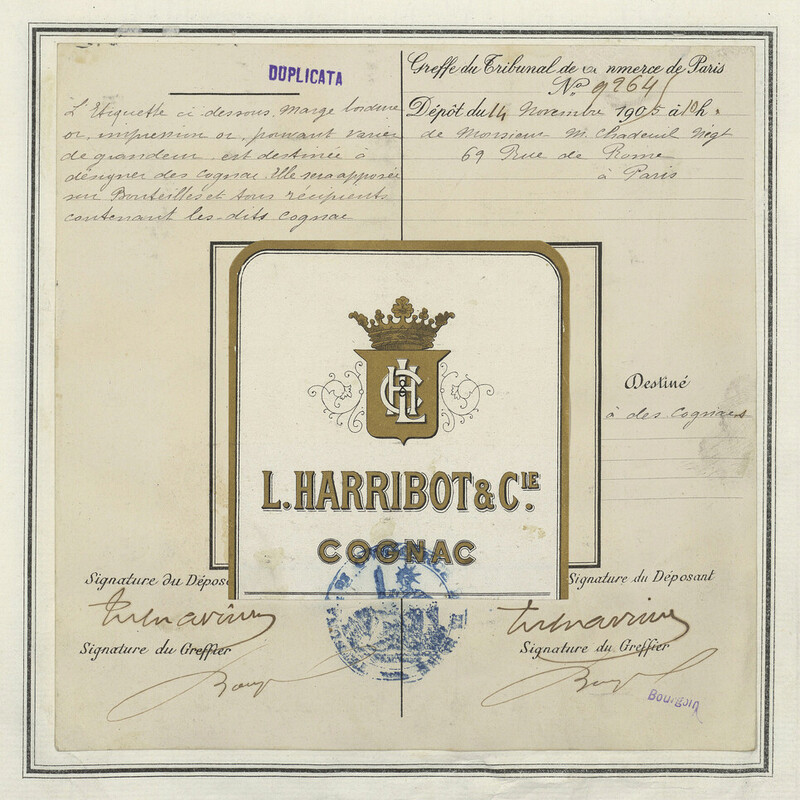 DUPLICATA
L'Etiquette ci dessous, Marge bordure
or, impression or, pouvant varier
de grandeur est destinée à
désigner des Cognac. Elle sera apposée
sur Bouteilles et tous récipients
contenant les-dits Cognac
Greffe du Tribunal de merce de Paris
No 9264
Dépôt du 14 Novembre 1905 à 10h
de Monsieur M. Chadeuil Négt
69 Rue de Rome
à Paris
HC&L
L. HARRIBOT & CIE.
COGNAC
Destiné
à des Cognacs
Signature du Dépos
Signature du Greffier
Signature du Déposant
Signature du Greffier
Bourgoin